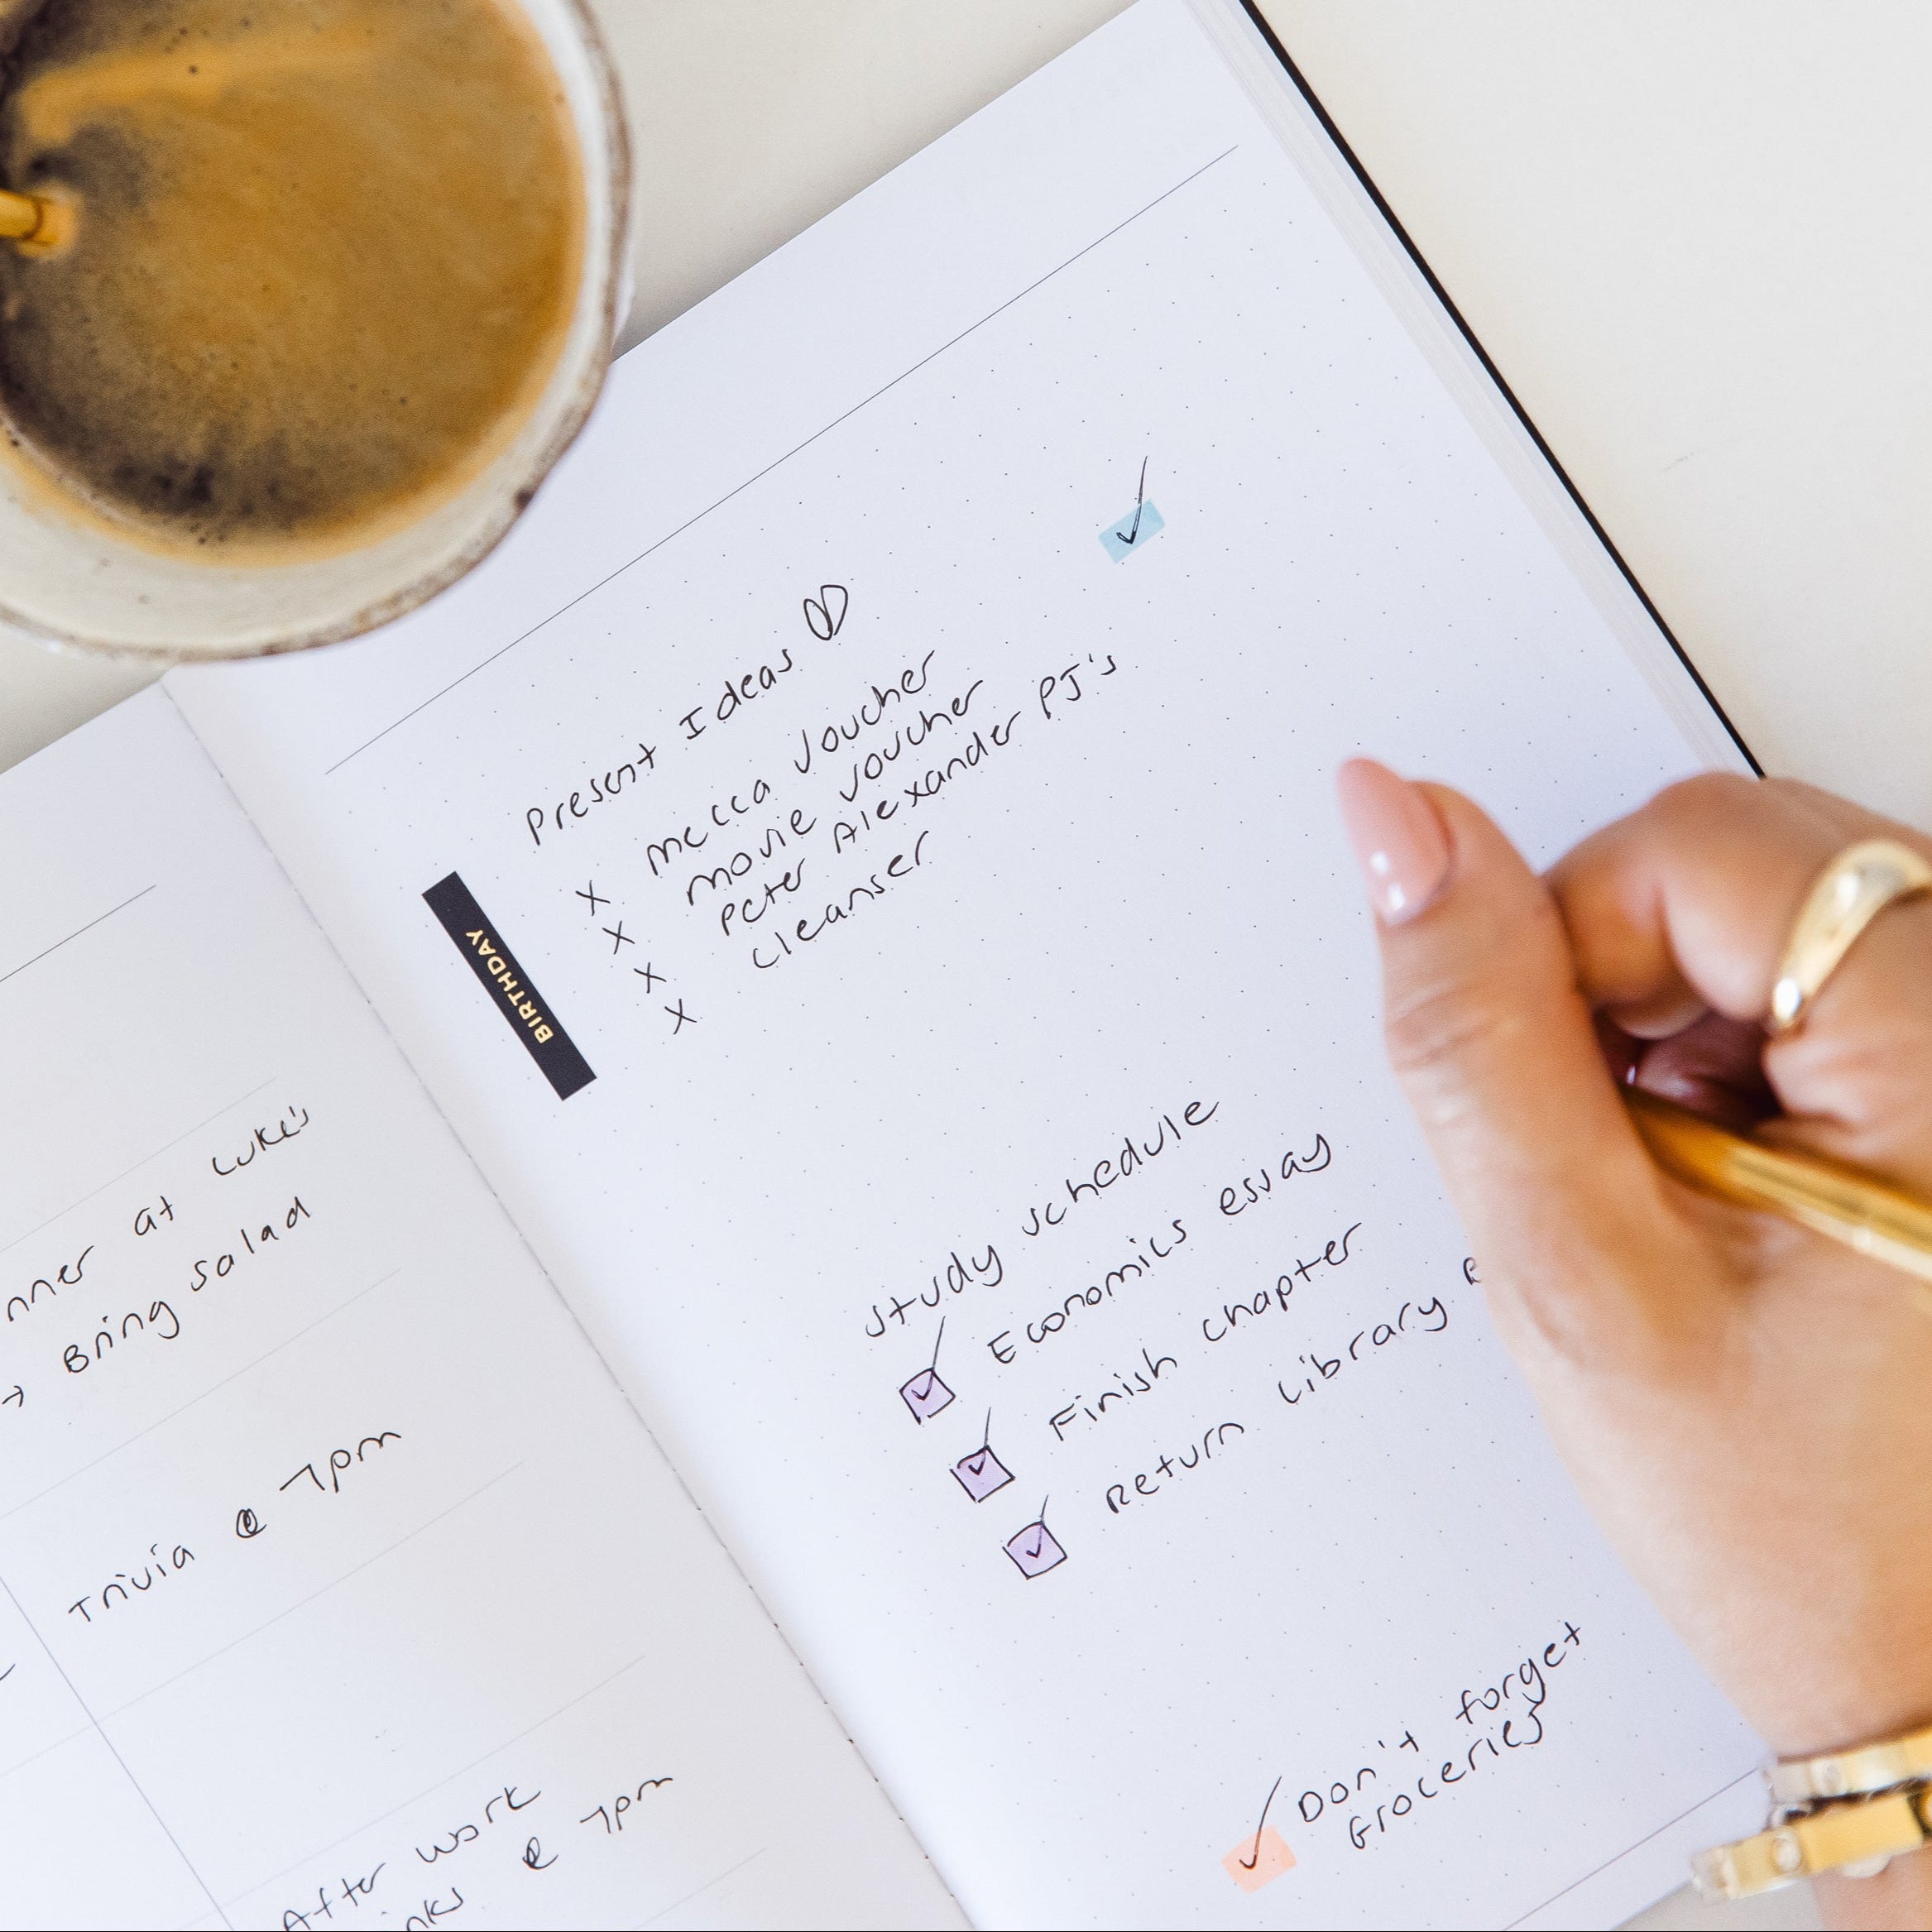 at Luke's
Bring salad
Trivia @ 7pm
After work
@ 7pm
Present Ideas
BIRTHDAY
x mecca voucher
x movie voucher
x Peter Alexander PJ's
x cleanser
Study schedule
Economics essay
Finish chapter
Return Library
Don't forget
Groceries